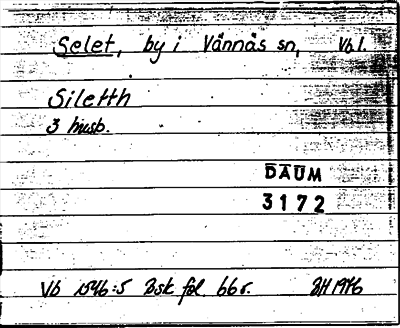 Selet, by i Vännäs sn, Vb l.
Siletth
3 husb.
DAUM
3172
Vb 1546:5 Bsk fol. 66r. BH 1976